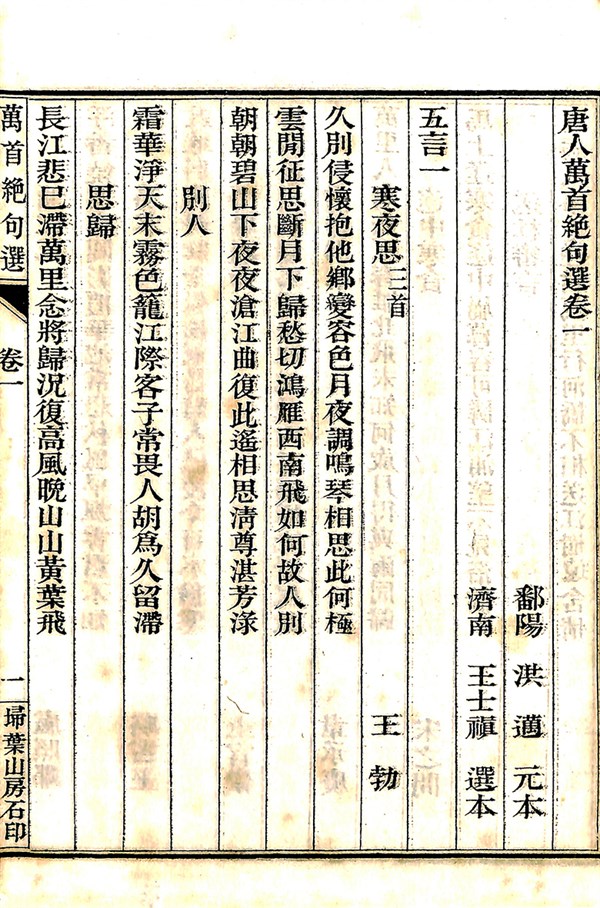 唐人萬首絶句選卷一
鄱陽 洪邁 元本
濟南 王士禛 選本
五言一
寒夜思三首 王勃
久別侵懷抱他鄉變容色月夜調鳴琴相思此何極
雲閒征思斷月下歸愁切鴻雁西南飛如何故人別
朝朝碧山下夜夜滄江曲復此遙相思淸尊湛芳淥
別人
霜華淨天末霧色籠江際客子常畏人胡爲久留滯
思歸
長江悲已滯萬里念將歸況復高風晚山山黃葉飛
萬首絶句選 卷一 一 埽葉山房石印